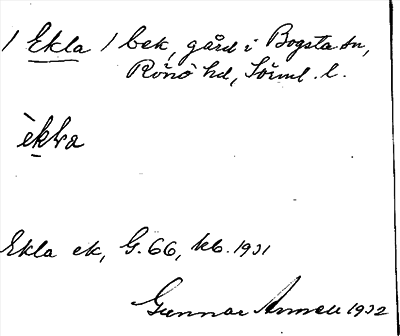 1 Ekla 1 bek, gård i Bogsta sn,
Rönö hd, Sörml. l.
èkla
Ekla ek, G. 66, kb. 1931
Gunnar Annell 1932